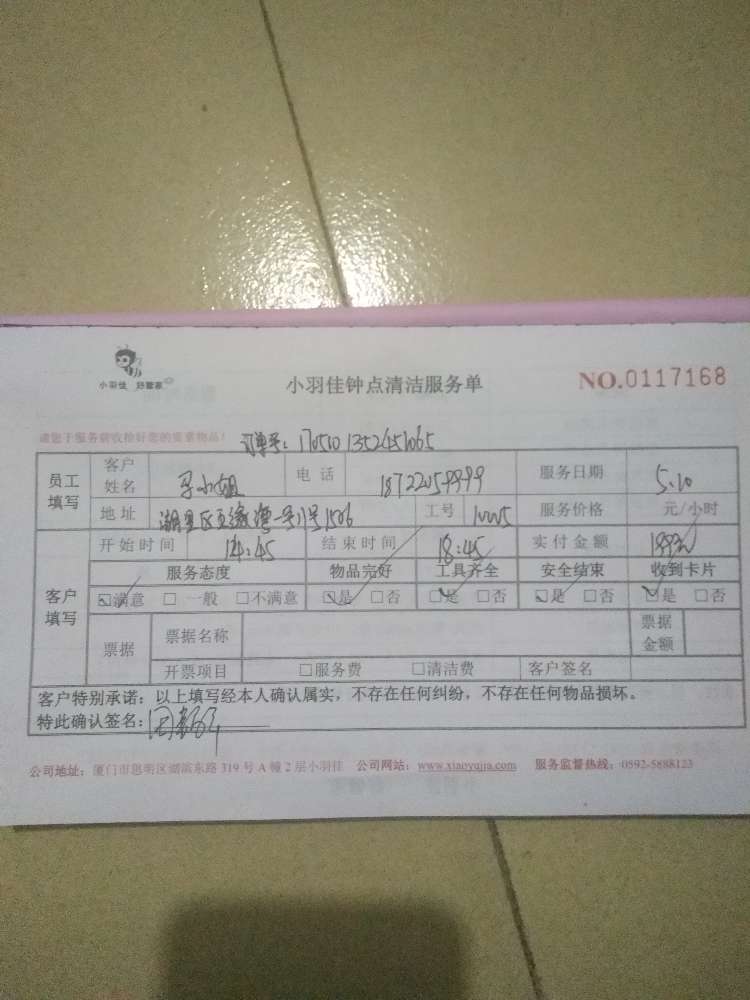 小羽佳 好管家
小羽佳钟点清洁服务单
NO.0117168
请您于服务前收拾好您的贵重物品!
订单号:
员工填写 客户姓名 小姐 电话 服务日期 5.10
地址 湖里区 1506 工号 10005 服务价格 元/小时
客户填写 开始时间 14:45 结束时间 18:45 实付金额
服务态度 物品完好 工具齐全 安全结束 收到卡片
☑满意 □一般 □不满意 ☑是 □否 ☑是 □否 ☑是 □否 ☑是 □否
票据 票据名称 票据金额
开票项目 □服务费 □清洁费 客户签名
客户特别承诺:以上填写经本人确认属实,不存在任何纠纷,不存在任何物品损坏。
特此确认签名:
公司地址:厦门市思明区湖滨东路 319 号 A 幢 2 层小羽佳 公司网站:www.xiaoyujia.com 服务监督热线:0592-5888123